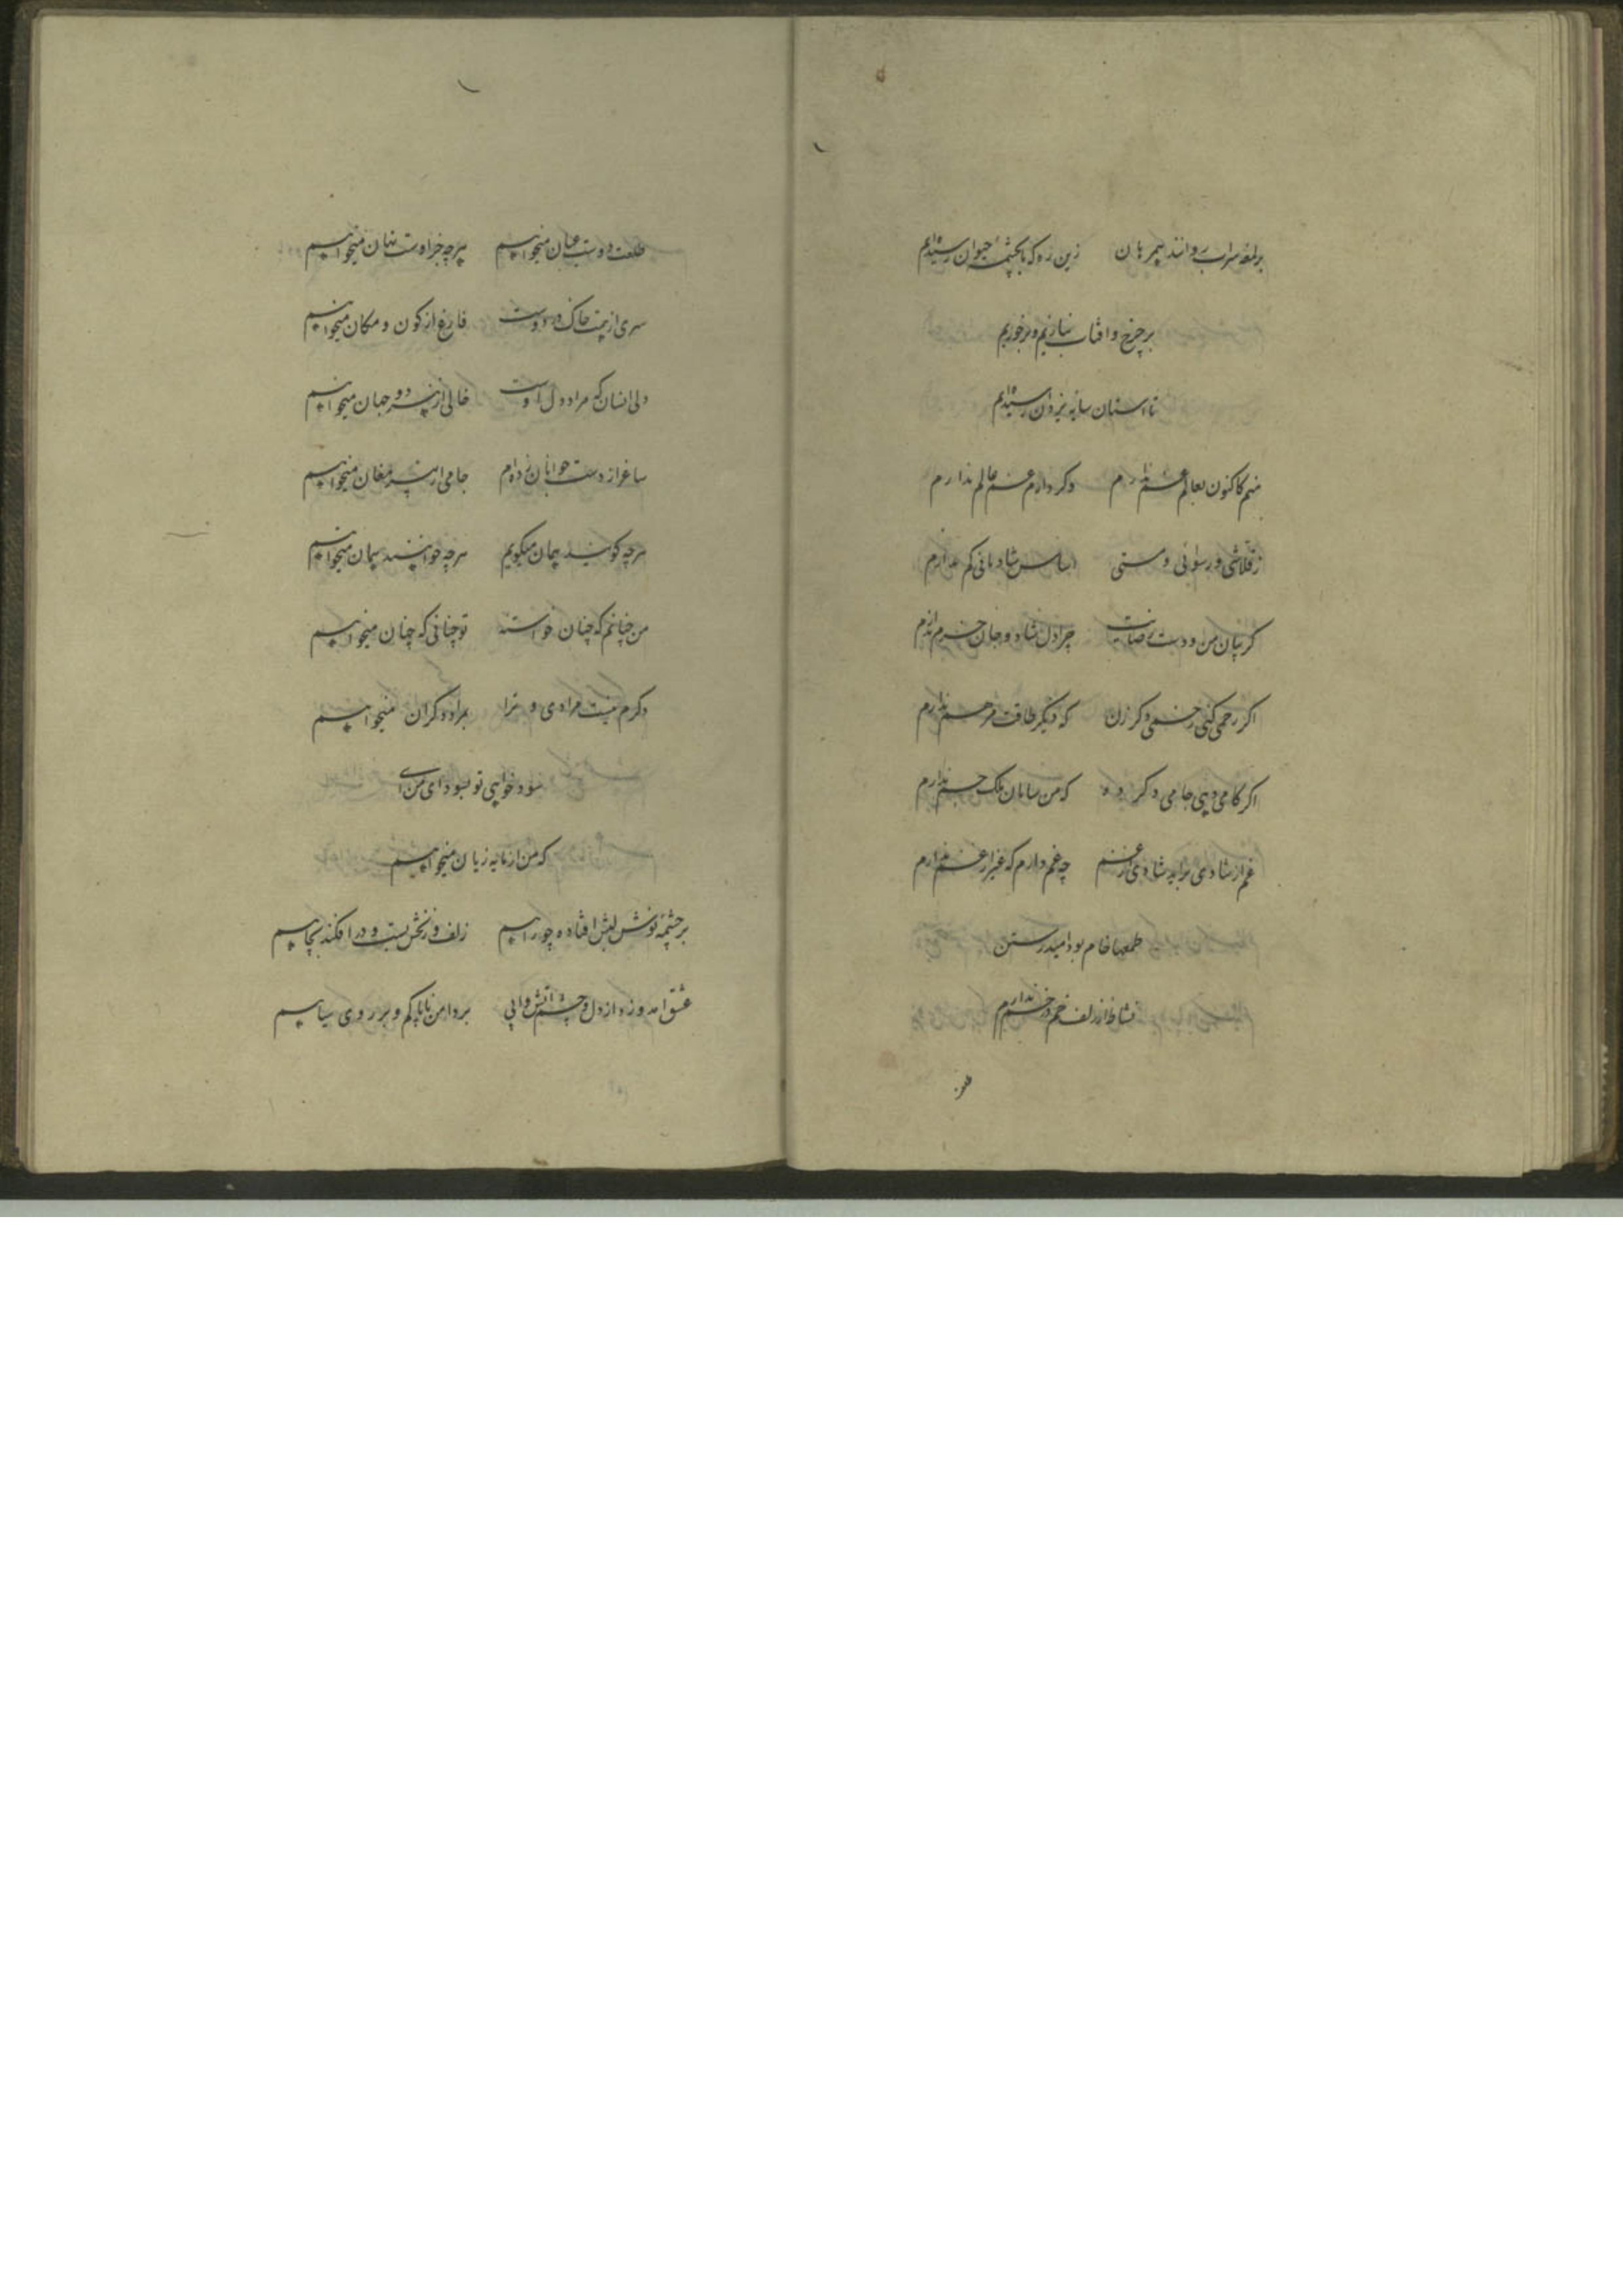 بر لمعه سراب روانند همرهان زین ره که ما بچشمه حیوان رسیده‌ایم
بر چرخ و افتاب بنازیم و برخوریم
تا استان سایه یزدان رسیده‌ایم
منم کاکنون بعالم غم ندارم وکر دارم غم عالم ندارم
ز قلاشی و رسوائی و مستی اساس شادمانی کم ندارم
کریبان من و دست چرا دل شاد و جان خرم ندارم
اکر رحمی کنی زخمی دکر زن که دیکر طاقت مرهم ندارم
اکر کامی دهی جامی دکر ده که من سامان ملک جم ندارم
غم از شادی شادی از غم چه غم دارم که غیر از غم ندارم
طمعها خام بود امید رستن
نشاط از زلف خم در خم ندارم
طلعت دوست عیان میخواهیم هر چه جز اوست نهان میخواهیم
سری از خاک در دوست فارغ از کون و مکان میخواهیم
دلی انسان که مراد دل اوست خالی از هر دو جهان میخواهیم
ساغر از دست جوانان ندهم جامی از پیر مغان میخواهیم
هر چه کویند همان میکویم هر چه خواهند همان میخواهیم
من چنانم که چنان خواسته تو چنانی که چنان میخواهیم
دکرم نیست مرادی و ترا بمراد دکران میخواهیم
سود خواهی تو بسودای من ای
که من از مایه زیان میخواهیم
بر چشمه نوش لبش افتاده چو راهیم زلف و زنخش بست و درافکند بچاهیم
عشق امد و زد از دل و چشم اتش و ابی بر دامن ناپاکم و بر روی سیاهیم